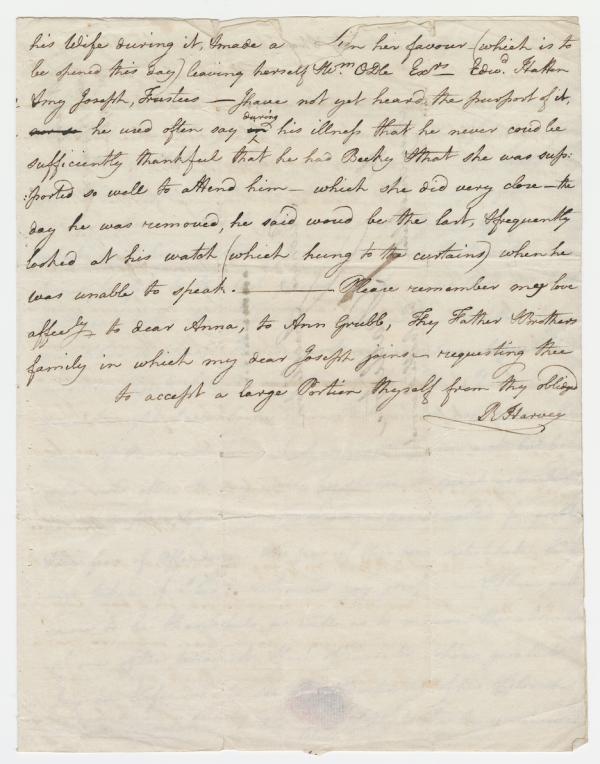 his Wife during it, & made a in her favour (which is to
be opened this day) leaving herself & Wm Exrs Edwd Hatton
& my Joseph, Trustees — I have not yet heard the purport of it,
he used often say during his illness that he never could be
sufficiently thankful that he had Becky & that she was sup:
:ported so well to attend him — which she did very close — the
day he was removed, he said would be the last, & frequently
looked at his watch (which hung to the curtains) when he
was unable to speak. ——— Please remember my love
affecly to dear Anna, to Ann Grubb, Thy Father & Brothers
family in which my dear Joseph joins — requesting thee
to accept a large Portion thyself from thy obliged
R Harvey